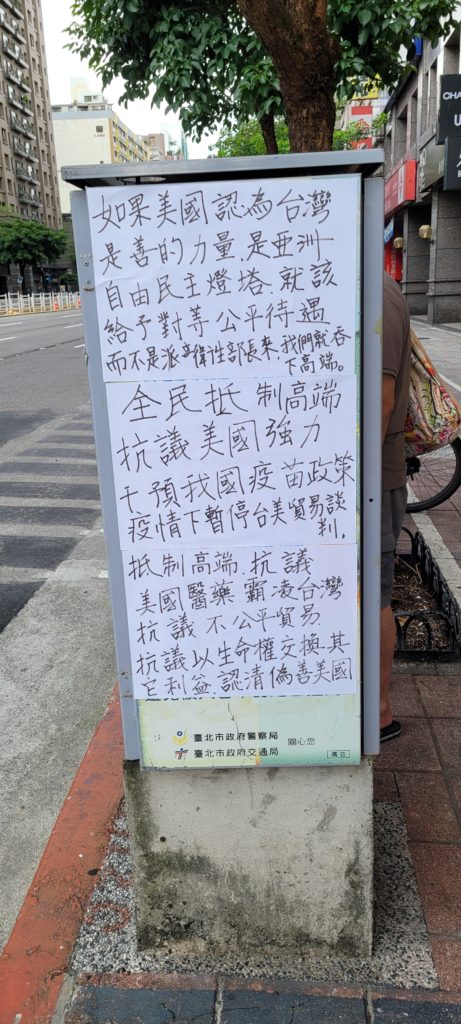 如果美國認為台灣
是善的力量.是亞洲
自由民主燈塔.就該
給予對等公平待遇
而不是派衛性部長來.我們就吞
下高端。
全民抵制高端
抗議美國強力
干預我國疫苗政策
疫情下暫停台美貿易談
判.
抵制高端.抗議
美國醫藥霸凌台灣
抗議不公平貿易
抗議以生命權交換其
它利益.認清偽善美國
臺北市政府警察局
關心您
臺北市政府交通局
廣告